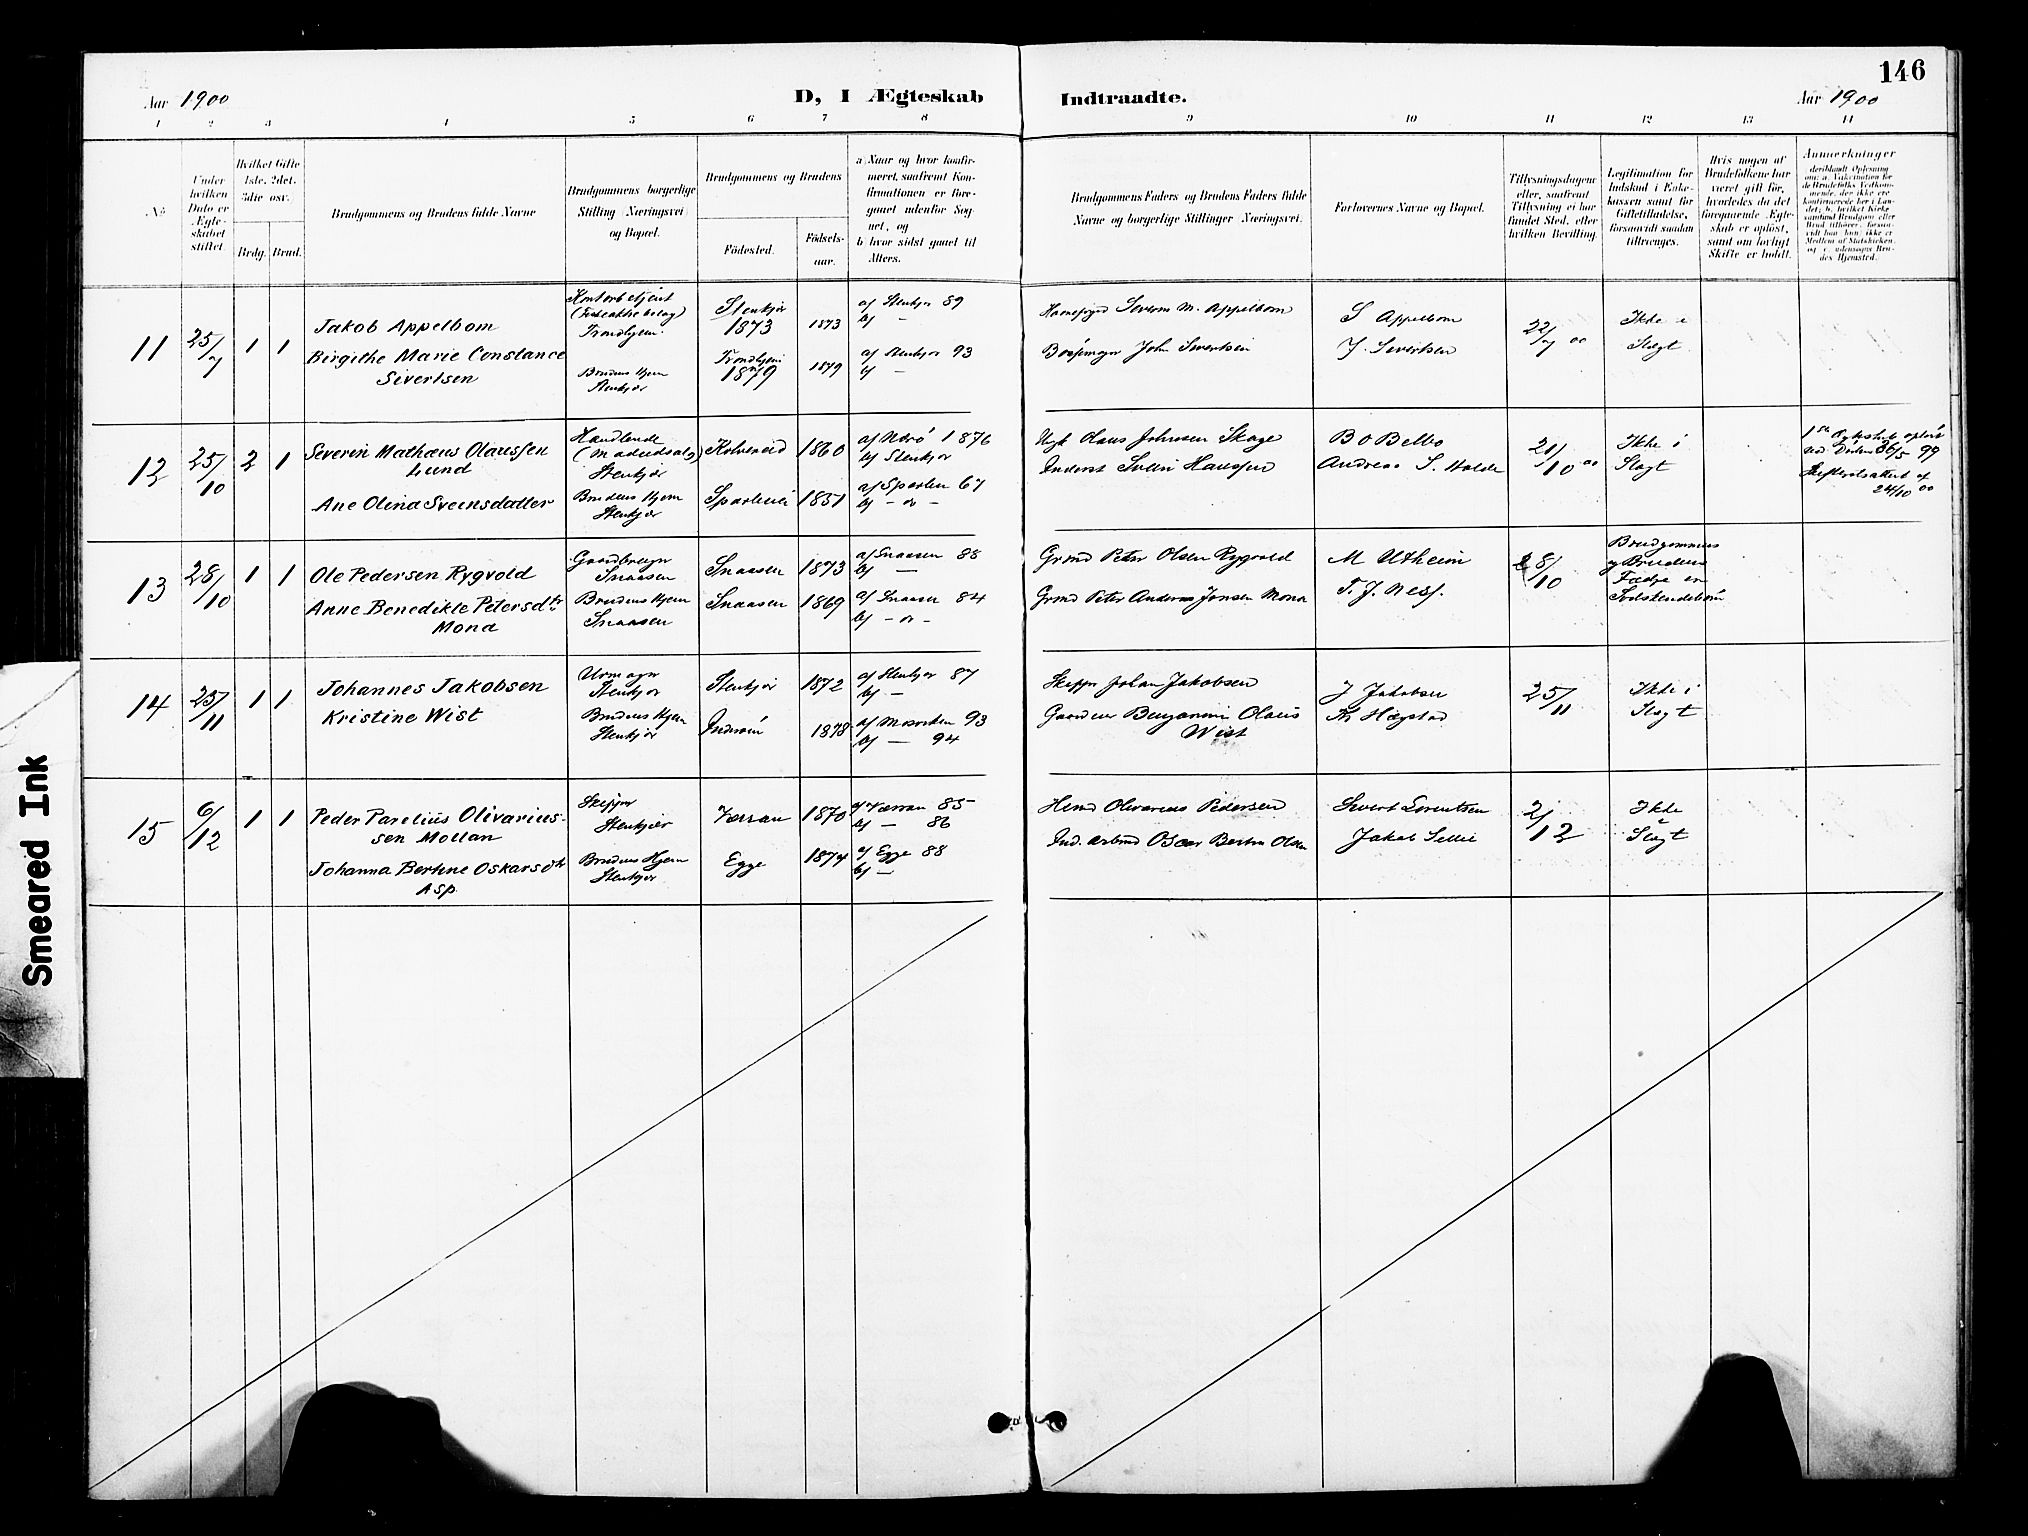 146
Aar 1900
D, I Ægteskab Indtraadte.
Aar 1900
1 2 3 4 5 6 7 8 9 10 11 12 13 14
No.
Under hvilken Dato er Ægteskabet stiftet.
Hvilket Gifte 1ste. 2det. 3die osv.
Brdg. Brud.
Brudgommens og Brudens fulde Navne
Brudgommens borgerlige Stilling (Næringsvei) og Bopæl.
Brudgommens og Brudens
Fødested.
Fødselsaar.
a) Naar og hvor konfirmeret, saafremt Konfirmationen er foregaaet udenfor Sognet, og
b) hvor sidst gaaet til Alters.
Brudgommens Faders og Brudens Faders fulde Navne og borgerlige Stillinger (Næringsvei).
Forlovernes Navne og Bopæl.
Tillysningsdagene eller, saafremt Tillysning ei har fundet Sted, efter hvilken Bevilling.
Legitimation for Indskud i Enkekassen samt for Giftetilladelse, forsaavidt saadan tiltrænges.
Hvis nogen af Brudefolkene har været gift før, hvorledes da det foregaaende Ægteskab er opløst, samt om lovligt Skifte er holdt.
Anmerkninger
11
25/7
1 1
Jakob Appelbom
Birgithe Marie Constance
Sivertsen
Kontorbetjent
Trondhjem
Brudens Hjem
Stenkjær
Stenkjær
1873
1873
Trondhjem
1879
1879
a) Stenkjær 89
b) —
a) Stenkjær 93
b) —
Severin M. Appelbom
John Sivertsen
S Appelbom
J. Sivertsen
22/7 00
Ikke i
Slægt
12
25/10
2 1
Severin Mathæus Olaussen
Lund
Ane Olina Sveinsdatter
Handlende
(Madudsalg)
Stenkjær
Brudens Hjem
Stenkjær
Kolvereid
1860
Sparbuen
1851
a) Ytterø 1876
b) Stenkjær
a) Sparbuen 67
b) - do -
Olaus Johnsen Skage
Inderst Svein Hanssen
B O Belbo
Andreas S. Holde
21/10 00
Ikke i
Slægt
1ste Ægteskab opløst
ved Døden 26/5 99
Skifteretsattest af
24/10 00
13
28/10
1 1
Ole Pedersen Rygvold
Anne Benedikte Petersdtr
Mona
Gaardbruger
Snaasen
Brudens Hjem
Snaasen
Snaasen
1873
Snaasen
1869
a) Snaasen 88
b) —
a) Snaasen 84
b) - do -
Grmd Peter Olsen Rygvold
Grmd Peter Andreas Jonsen Mona
M Utheim
T. J. Ness.
28/10
Brudgommens
og Brudens
Fædre er
Sødskendebørn
14
25/11
1 1
Johannes Jakobsen
Kristine Wist
Urmager
Stenkjær
Brudens Hjem
Stenkjær
Stenkjær
1872
Inderøen
1878
a) Stenkjær 87
b) —
a) Mosviken 93
b) — 94
Skipper Johan Jakobsen
Gaardeier Benjamin Olaus
Wist
J Jakobsen
Hægstad
25/11
Ikke i
Slægt
15
6/12
1 1
Peder Parelius Olivarius-
sen Mollan
Johanna Berhne Oskarsdtr
Asp
Skipper
Stenkjær
Brudens Hjem
Stenkjær
Værran
1870
Egge
1874
a) Værran 85
b) — 86
a) Egge 88
b) —
Hmd Olivarius Pedersen
Oscar Berton Olsen
Sivert Lorentsen
Jakob Selli
2/12
Ikke
i
Slægt
Smeared Ink